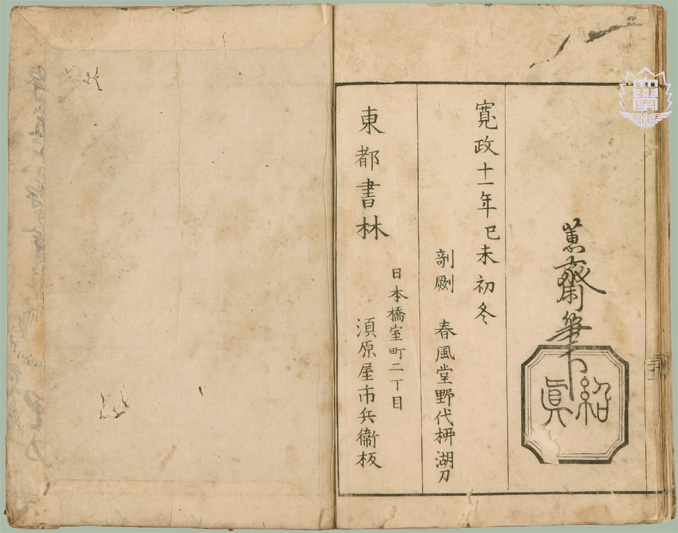 蕙齋筆
紹
眞
寛政十一年己未初冬
剞劂 春風堂野代栁湖刀
東都書林
日本橋室町二丁目
湏原屋市兵衞板